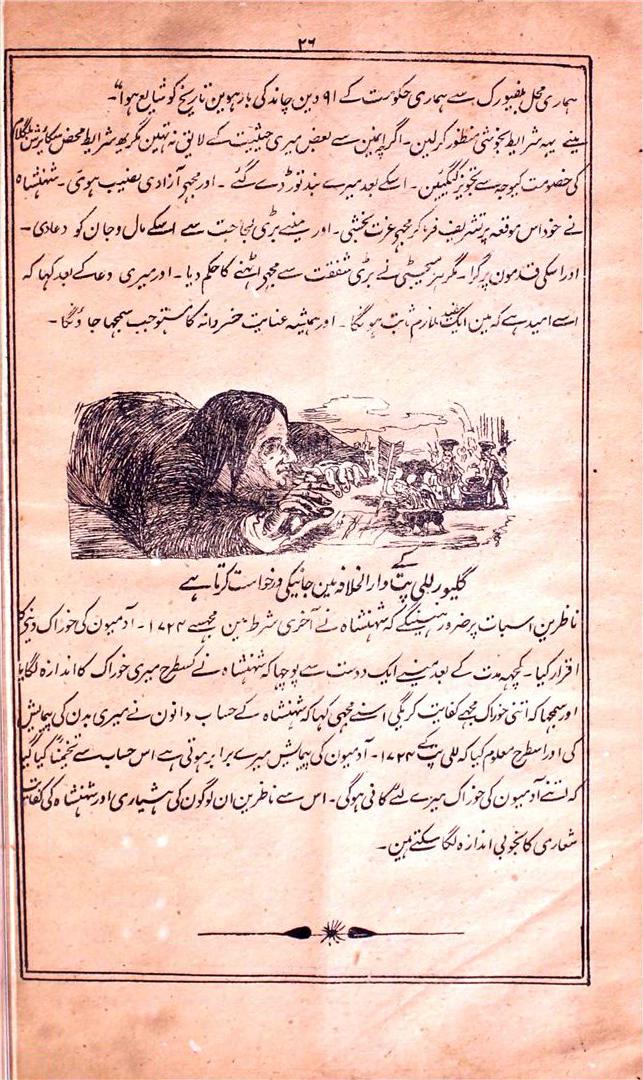 ۲۶
ہماری محل بلفیورک سے ہماری حکومت کے ۹۱ وین چاند کی بارہوین تاریخ کو شایع ہوا"۔
مینے یہہ شرایط بخوشی منظور کرلین۔ اگرچہ انمین سے بعض میری حیثیت کے لایق نہ تہین مگر یہہ شرایط محض سکائرش بلگلام
کی خصومت کیوجہ سے تجویز کیگئین۔ اسکے بعد میرے بند توڑ دے گئے۔ اور مجہو آزادی نصیب ہوئی۔ شہنشاہ
نے خود اس موقعہ پر تشریف فرما کر مجہے عزت بخشی۔ اور مینے بڑی لجاحت سے اسکے مال و جان کو دعا دی۔
اور اسکی قدمون پر گرا۔ مگر ہز مجیسٹی نے بڑی شفقت سے مجہو اٹہنے کا حکم دیا۔ اور میری دعا کے بعد کہا کہ
اسے امید ہے کہ مین ایک مفید ملازم ثابت ہونگا۔ اور ہمیشہ عنایت خسروانہ کا مستوجب سمجہا جاؤنگا۔
گلیور للی پٹ کے دار الخلافہ مین جانیکی درخواست کرتا ہے
ناظرین اسبات پر ضرور ہنسینگے کہ شہنشاہ نے آخری شرط مین مجہسے ۱۷۲۴۔ آدمیون کی خوراک دینیکا
اقرار کیا۔ کچہہ مدت کے بعد مینے ایک دوست سے پوچہا کہ شہنشاہ نے کسطرح میری خوراک کا اندازہ لگایا
اور سمجہا کہ اتنی خوراک مجہے کفایت کریگی اسنے مجہی کہا کہ شہنشاہ کے حساب دانون نے میری بدن کی پیمایش
کی اور اسطرح معلوم کیا کہ للی پٹ کے ۱۷۲۴۔ آدمیون کی پیمایش میرے برابر ہوتی ہے اس حساب سے تخمیناً کیا گیا
کہ اتنے آدمیون کی خوراک میرے لئے کافی ہوگی۔ اس سے ناظرین ان لوگون کی ہشیاری اور شہنشاہ کی کفایت
شعاری کا بخوبی اندازہ لگا سکتے ہین۔